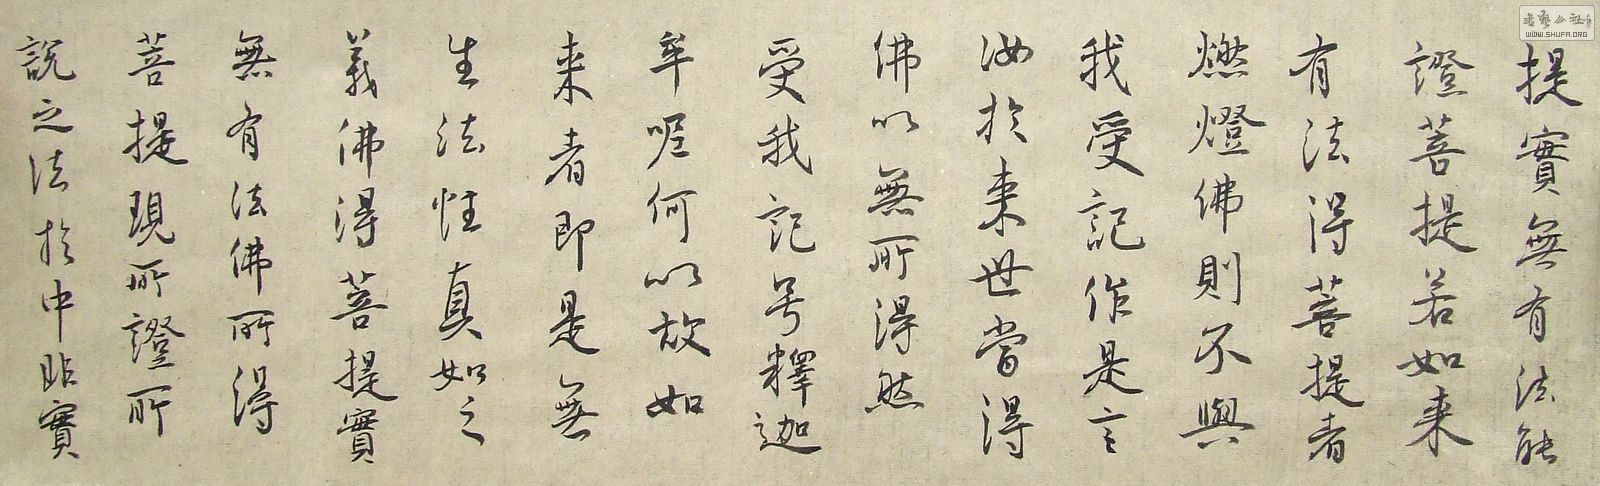 提實無有法能
證菩提若如来
有法得菩提者
燃燈佛則不與
我受記作是言
汝於来世當得
佛以無所得然
受我記号釋迦
牟呢何以故如
来者即是無
生法性真如之
義佛得菩提實
無有法佛所得
菩提現所證所
說之法於中非實
書藝公社
WWW.SHUFA.ORG